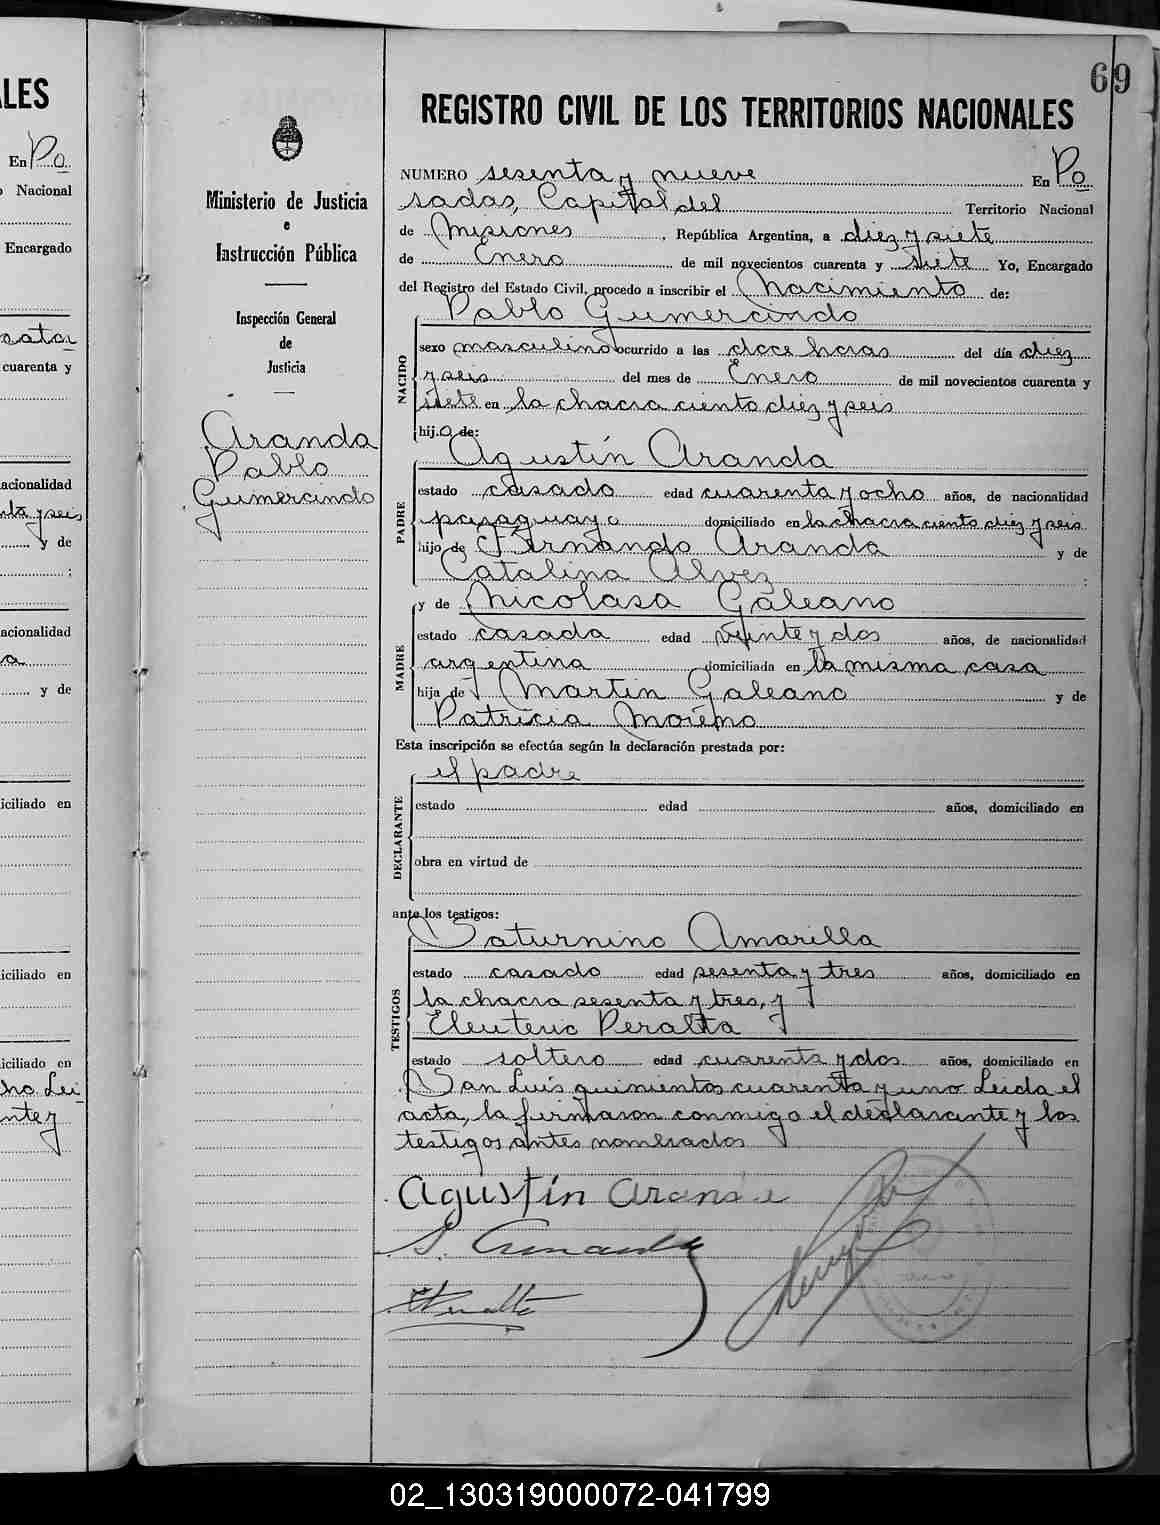 LES
En Po
Nacional
Encargado
cuarenta y
acionalidad
y de
acionalidad
y de
iciliado en
iciliado en
iciliado en
Ministerio de Justicia
e
Instrucción Pública
Inspección General
de
Justicia
Aranda
Pablo
Gumercindo
69
REGISTRO CIVIL DE LOS TERRITORIOS NACIONALES
NUMERO sesenta y nueve En Po
sadas, Capital del Territorio Nacional
de Misiones, República Argentina, a diez y siete
de Enero de mil novecientos cuarenta y siete Yo, Encargado
del Registro del Estado Civil, procedo a inscribir el Nacimiento de:
Pablo Gumercindo
NACIDO
sexo masculino ocurrido a las doce horas del día diez
y seis del mes de Enero de mil novecientos cuarenta y
siete en la chacra ciento diez y seis
hijo de:
Agustín Aranda
PADRE
estado casado edad cuarenta y ocho años, de nacionalidad
paraguayo domiciliado en la chacra ciento diez y seis
hijo de Fernando Aranda y de
Catalina Alvez;
y de Nicolasa Galeano
MADRE
estado casada edad veinte y dos años, de nacionalidad
argentina domiciliada en la misma casa
hija de Martin Galeano y de
Patricia Moreno
Esta inscripción se efectúa según la declaración prestada por:
el padre
DECLARANTE
estado edad años, domiciliado en
obra en virtud de
ante los testigos:
Saturnino Amarilla
TESTIGOS
estado casado edad sesenta y tres años, domiciliado en
la chacra sesenta y tres, y
Eleuterio Peralta
estado soltero edad cuarenta y dos años, domiciliado en
San Luis quinientos cuarenta y uno. Leida el
acta, la firmaron conmigo el declarante y los
testigos antes nombrados
Agustín Aranda
02_130319000072-041799